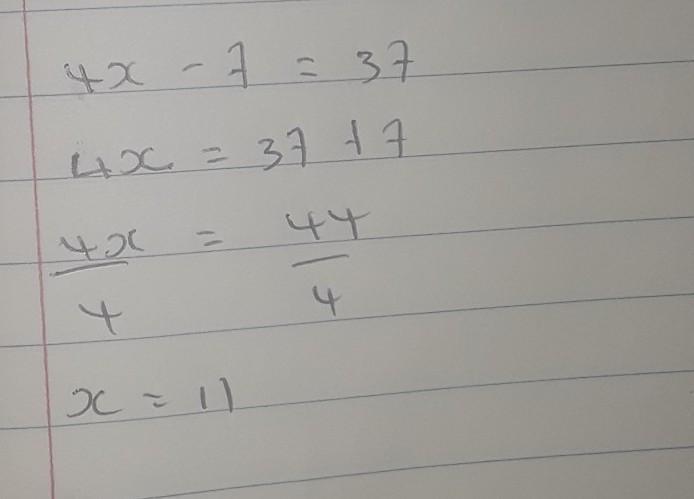 4x - 7 = 37
4x = 37 + 7
4x/4 = 44/4
x = 11